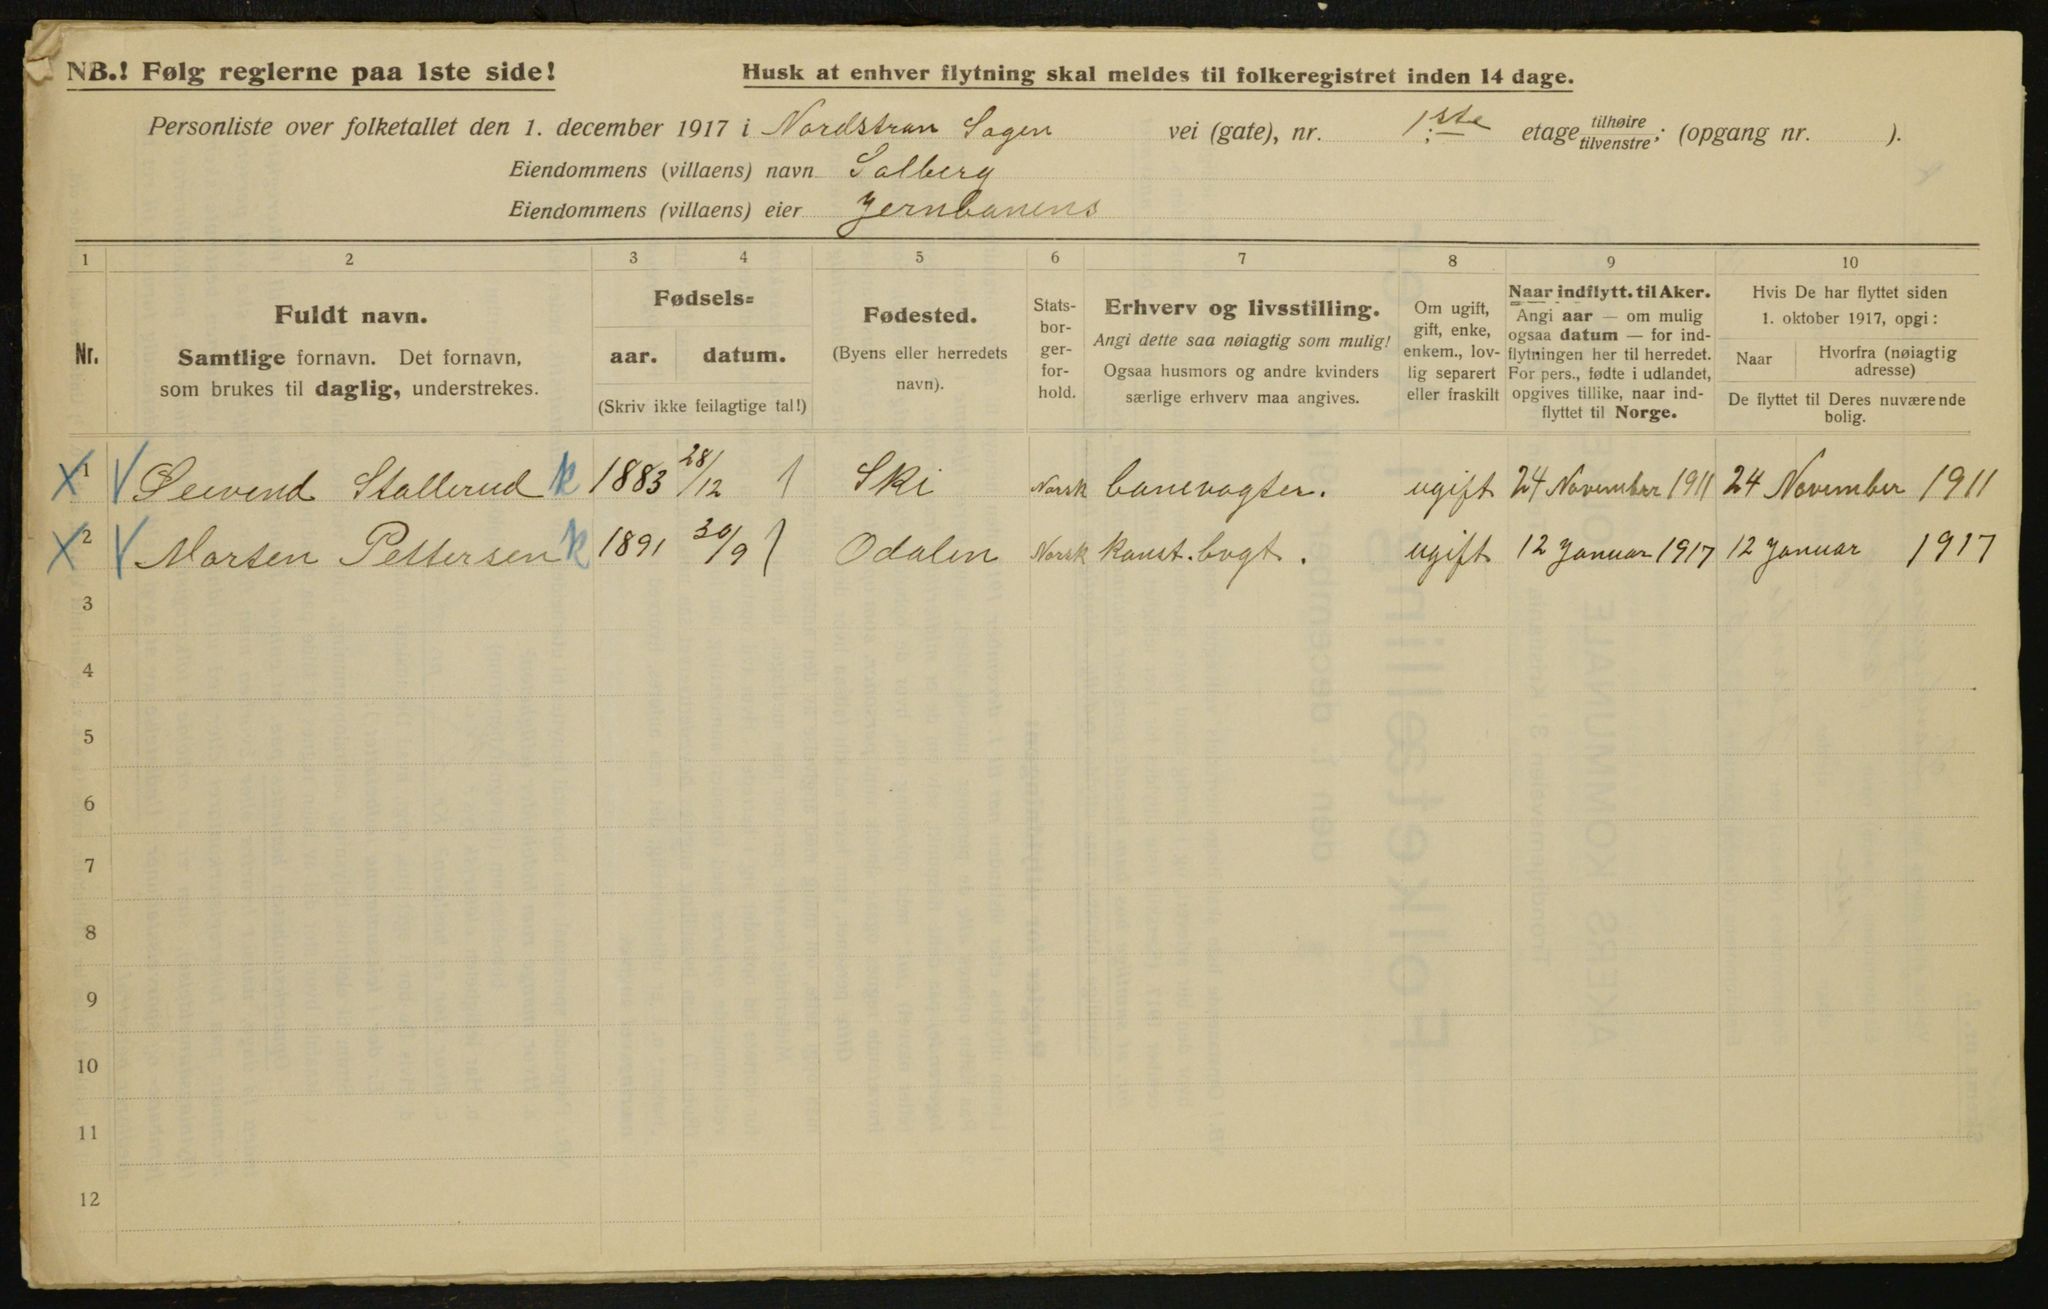 NB.! Følg reglerne paa 1ste side!
Husk at enhver flytning skal meldes til folkeregistret inden 14 dage.
Personliste over folketallet den 1. december 1917 i Nordstran Sogen vei (gate), nr. 1ste etage tilhøire/tilvenstre; (opgang nr. ).
Eiendommens (villaens) navn Solberg
Eiendommens (villaens) eier Jernbanens
1 2 3 4 5 6 7 8 9 10
Nr.
Fuldt navn.
Samtlige fornavn. Det fornavn,
som brukes til daglig, understrekes.
Fødsels=
aar. datum.
(Skriv ikke feilagtige tal!)
Fødested.
(Byens eller herredets
navn).
Stats-
bor-
ger-
for-
hold.
Erhverv og livsstilling.
Angi dette saa nøiagtig som mulig!
Ogsaa husmors og andre kvinders
særlige erhverv maa angives.
Om ugift,
gift, enke,
enkem., lov-
lig separert
eller fraskilt
Naar indflytt. til Aker.
Angi aar — om mulig
ogsaa datum — for ind-
flytningen her til herredet.
For pers., fødte i udlandet,
opgives tillike, naar ind-
flyttet til Norge.
Hvis De har flyttet siden
1. oktober 1917, opgi:
Naar
Hvorfra (nøiagtig
adresse)
De flyttet til Deres nuværende
bolig.
X 1 Stallerud k 1883 28/12 Ski Norsk banevogter. ugift 24 November 1911 24 November 1911
X 2 Morten Pettersen k 1891 30/9 Odalen Norsk konst. bvgt. ugift 12 Januar 1917 12 Januar 1917
3
4
5
6
7
8
9
10
11
12